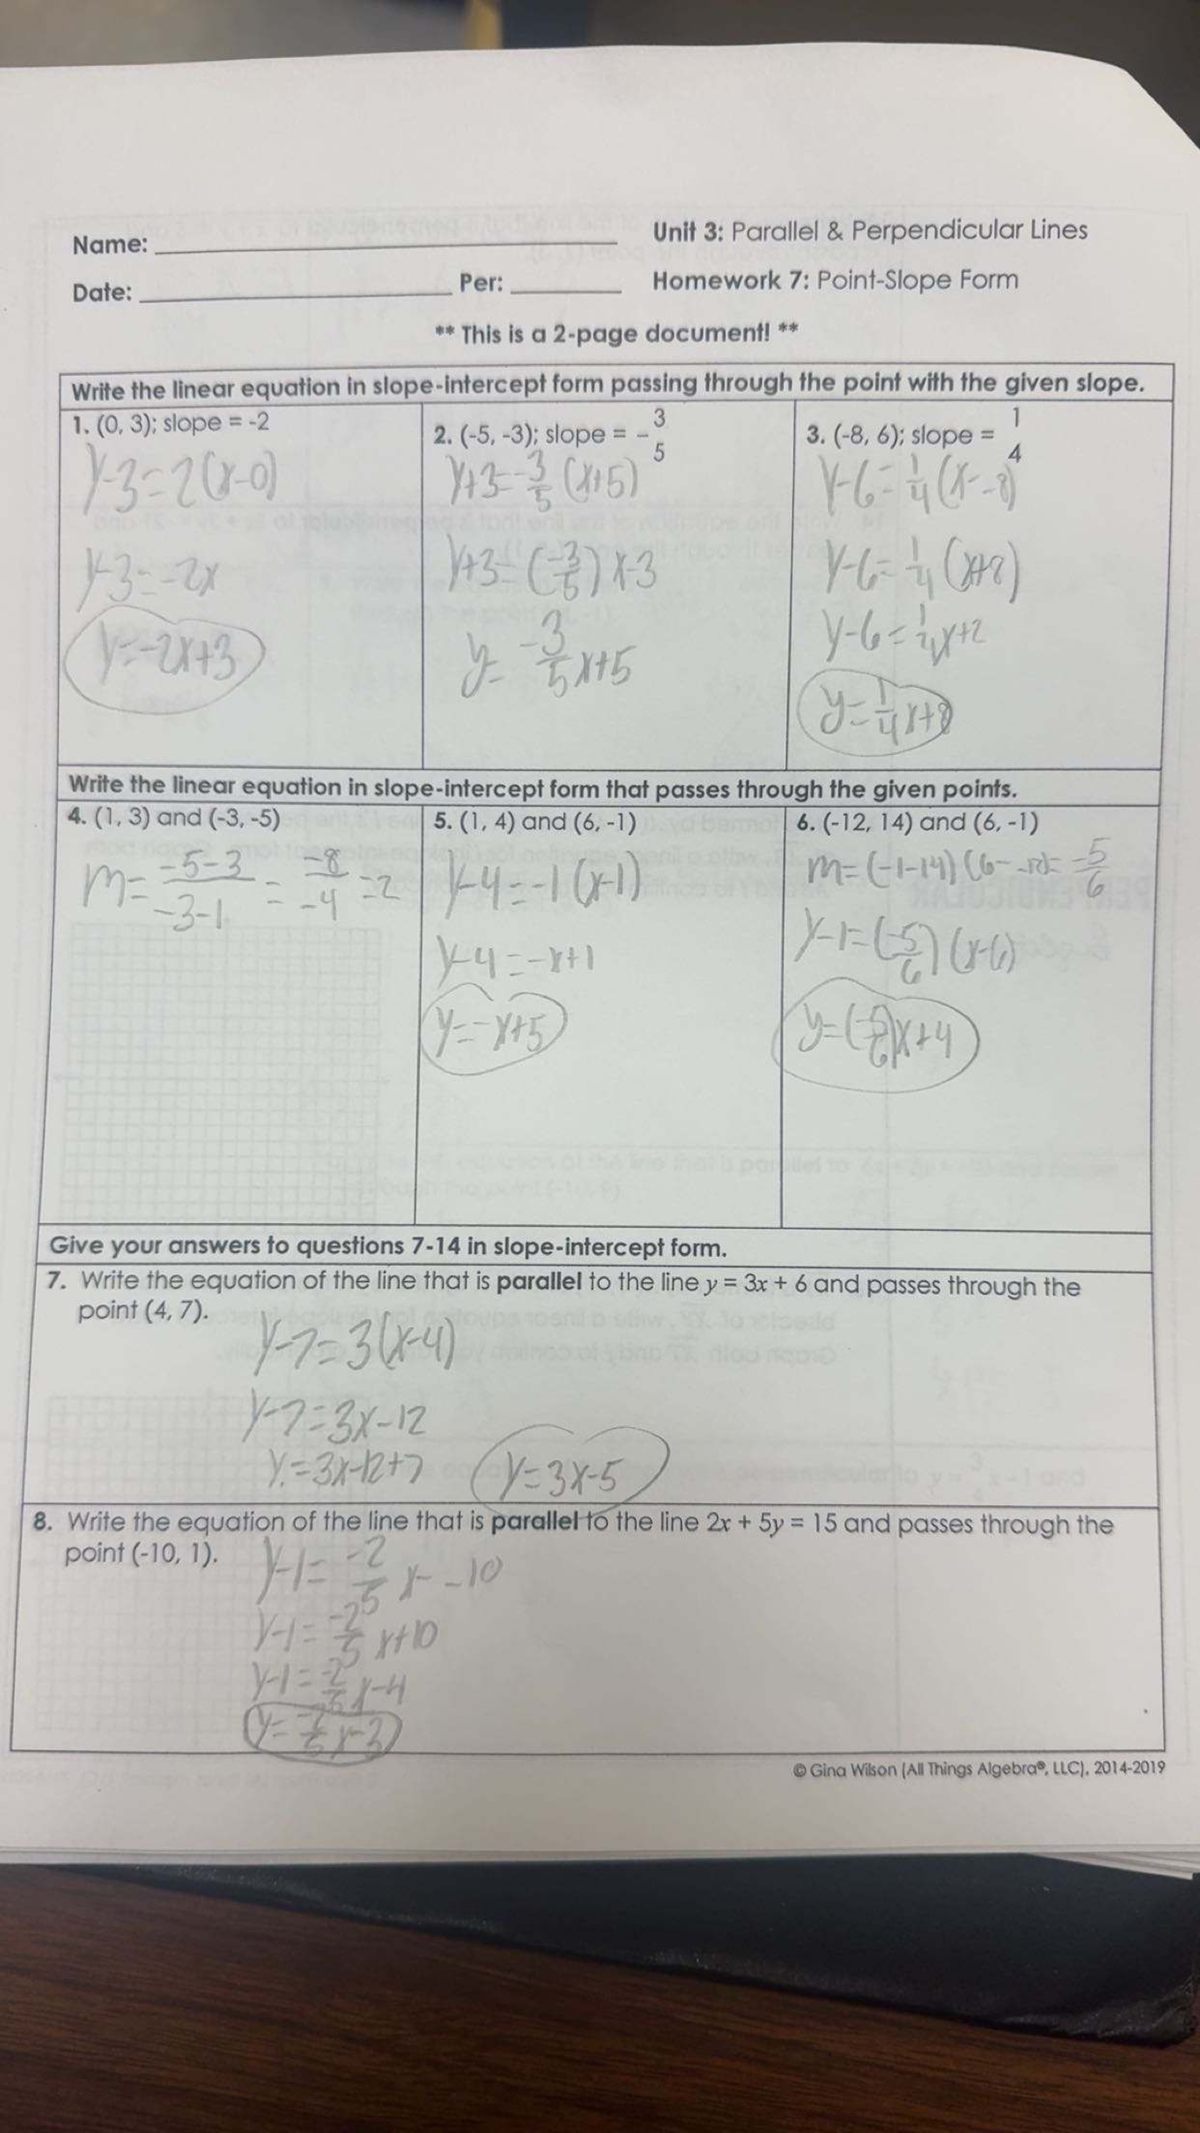 Name:
Unit 3: Parallel & Perpendicular Lines
Date: Per:
Homework 7: Point-Slope Form
** This is a 2-page document! **
Write the linear equation in slope-intercept form passing through the point with the given slope.
1. (0, 3); slope = -2
y-3=2(x-0)
y-3=-2x
y=-2x+3
2. (-5, -3); slope = -3/5
y+3=-3/5(x+5)
y+3=(-3/5)x-3
y=-3/5x+5
3. (-8, 6); slope = 1/4
y-6=1/4(x--8)
y-6=1/4(x+8)
y-6=1/4x+2
y=1/4x+8
Write the linear equation in slope-intercept form that passes through the given points.
4. (1, 3) and (-3, -5)
m=-5-3/-3-1=-8/-4=2
5. (1, 4) and (6, -1)
y-4=-1(x-1)
y-4=-x+1
y=-x+5
6. (-12, 14) and (6, -1)
m=(-1-14)(6--12)=-5/6
y-1=(-5/6)(x-6)
y=(-5/6)x+4
Give your answers to questions 7-14 in slope-intercept form.
7. Write the equation of the line that is parallel to the line y = 3x + 6 and passes through the
point (4, 7).
y-7=3(x-4)
y-7=3x-12
y=3x-12+7
y=3x-5
8. Write the equation of the line that is parallel to the line 2x + 5y = 15 and passes through the
point (-10, 1).
y-1=-2/5x--10
y-1=-2/5x+10
y-1=-2/5x-4
y=-2/5x-3
© Gina Wilson (All Things Algebra®, LLC), 2014-2019